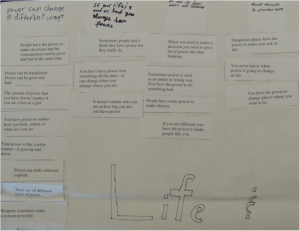 power can change
in different ways
People have the power to
make decisions and the
consequences can be good
and bad at the same time
Power can be transferred
Power can be good and
bad.
The amount of power that
you have doesn't matter if
you are a boy or a girl
You have power no matter
how you look, sound, or
what size you are.
goes up and
down.
Power can make someone
explode.
There are all different
types of power.
Weapons sometimes make
you more powerful
Sometimes people don't
think they have power but
they really do
You don't have power over
something all the time - it
can change when it
It doesn't matter who you
are or how big you are,
you have power
When you need to make a
decision you need to use a
lot of power and that
thinking.
Sometimes power is used
in an unfair or wrong way
You have the power to do
something bad
People have some power to
make choices
If you are different you
have the power to make
people like you
Dangerous places have the
power to make you sick or
die.
You never know when
power is going to change
in life.
You have the power to
change places where you
want to be.
Life